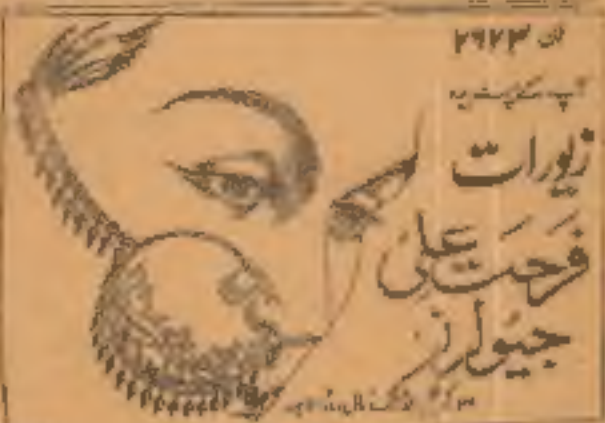 فون ۲۹۲۳
آپ کے پسندیدہ
زیورات
فرحت علی
جیولرز